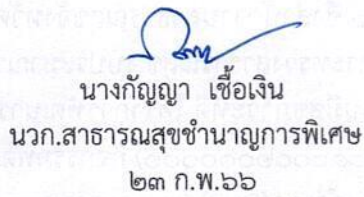 นางกัญญา เชื้อเงิน
นวก.สาธารณสุขชำนาญการพิเศษ
๒๓ ก.พ.๖๖